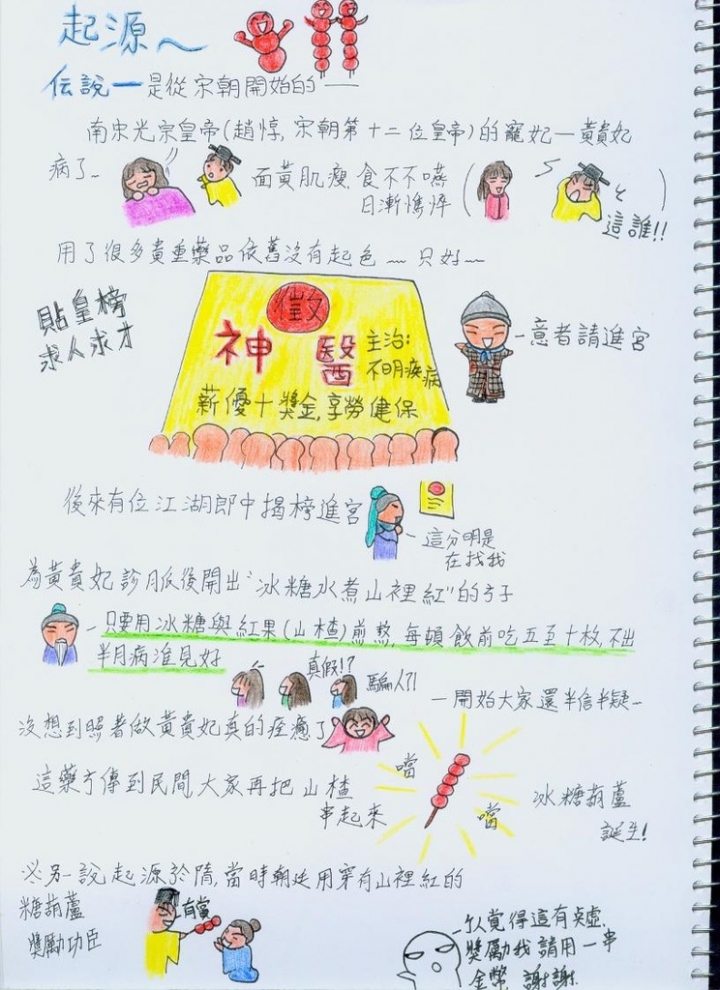 起源~
伝說一是從宋朝開始的──
南宋光宗皇帝(趙惇,宋朝第十二位皇帝)的寵妃─黃貴妃
病了~
面黃肌瘦,食不不嚥
日漸憔悴
這誰!!
用了很多貴重藥品依舊沒有起色~只好~
貼皇榜
求人求才
徵
神醫
主治:
不明疾病
薪優十獎金,享勞健保
意者請進宮
後來有位江湖郎中揭榜進宮
這分明是
在找我
為黃貴妃診脈後開出"冰糖水煮山裡紅"的方子
-只要用冰糖與紅果(山楂)煎熬,每頓飯前吃五至十枚,不出
半月病准見好
真假!?
騙人?!
一開始大家還半信半疑~
沒想到照者做黃貴妃真的痊癒了
這藥方傳到民間,大家再把山楂
串起來
噹
噹
冰糖葫蘆
誕生!
※另一說起源於隋,當時朝廷用穿有山裡紅的
糖葫蘆
獎勵功臣
有賞
覺得這有點虛,
獎勵我請用一串
金幣,謝謝.